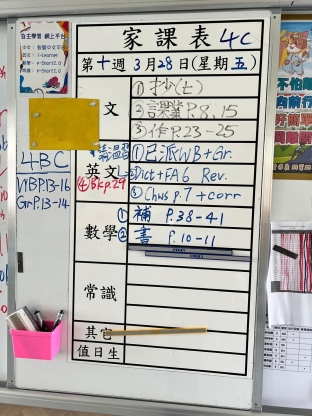 自主學習 網上平台
家課表 4C
第十週 3月28日(星期五)
文
① 抄(七)
② 課業 P.8, 15
③ 作 P.23-25
4BC
WB P.13-16
Gr P.13-14
英文
④ Bk p.29
① 已派WB + Gr.
② Dict + FA6 Rev.
③ Chws p.7 + corr
數學
① 補 P.38-41
② 書 P.10-11
常識
其它
值日生
不怕難
向前行